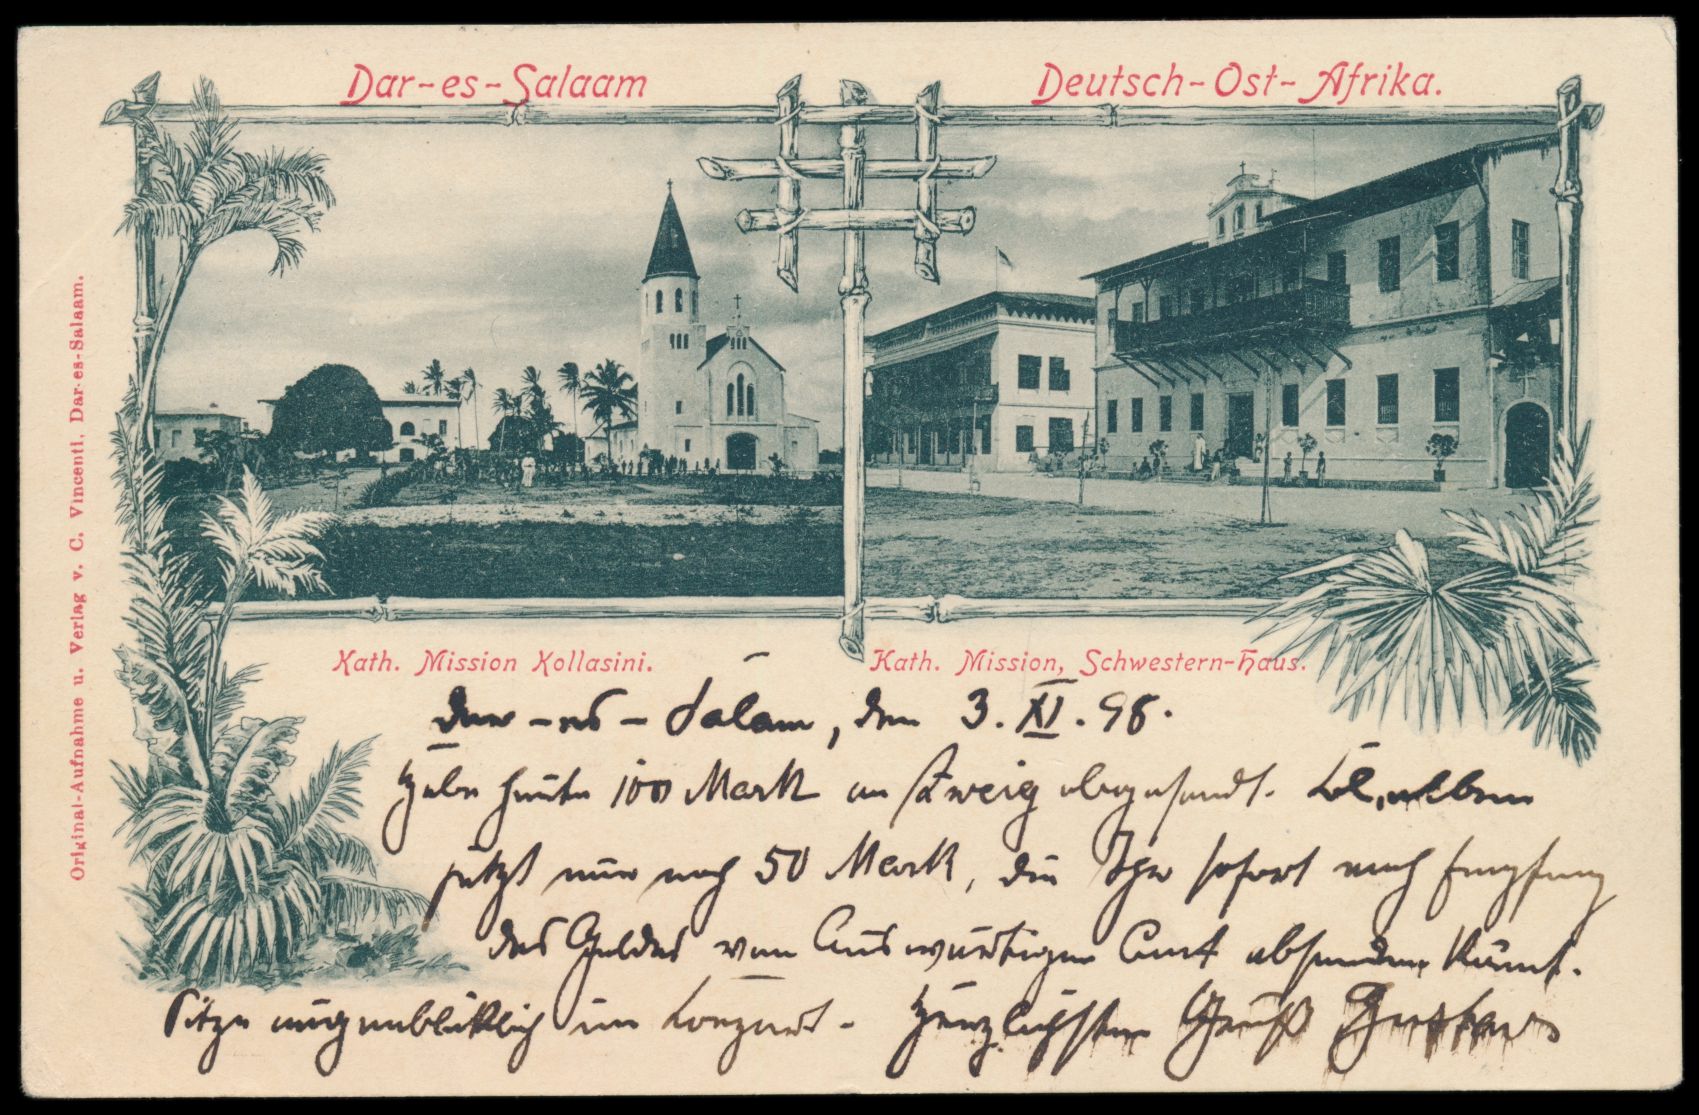 Dar-es-Salaam
Deutsch-Ost-Afrika.
Original-Aufnahme u. Verlag v. C. Vincenti, Dar-es-Salaam.
Kath. Mission Kollasini.
Kath. Mission, Schwestern-Haus.
Dar-es-Salam, den 3. XI. 98.
Habe heute 100 Mark an Zweig abgesandt.
jetzt nur noch 50 Mark, die Ihr sofort nach Empfang
des Geldes vom Auswärtigen Amt absenden könnt.
Sitze augenblicklich im Konzert. Herzlichsten Gruß Gustav